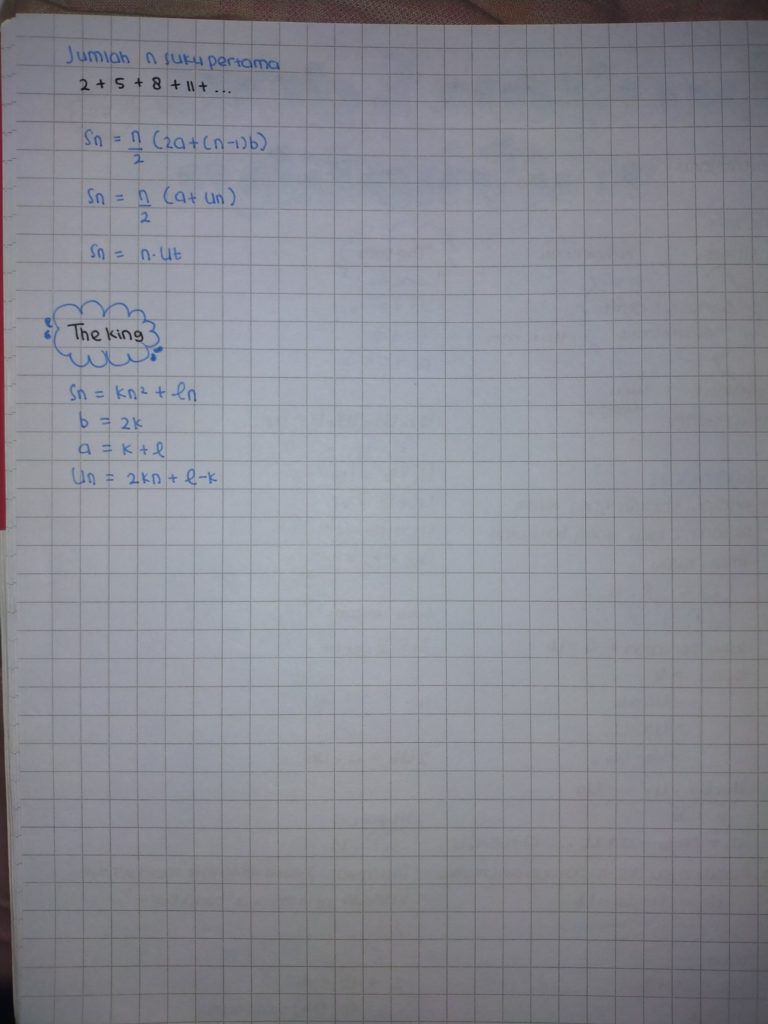 Jumlah n suku pertama
2 + 5 + 8 + 11 + ...
Sn = n/2 (2a + (n-1)b)
Sn = n/2 (a + Un)
Sn = n · Ut
The king
Sn = kn² + ln
b = 2k
a = k + l
Un = 2kn + l - k